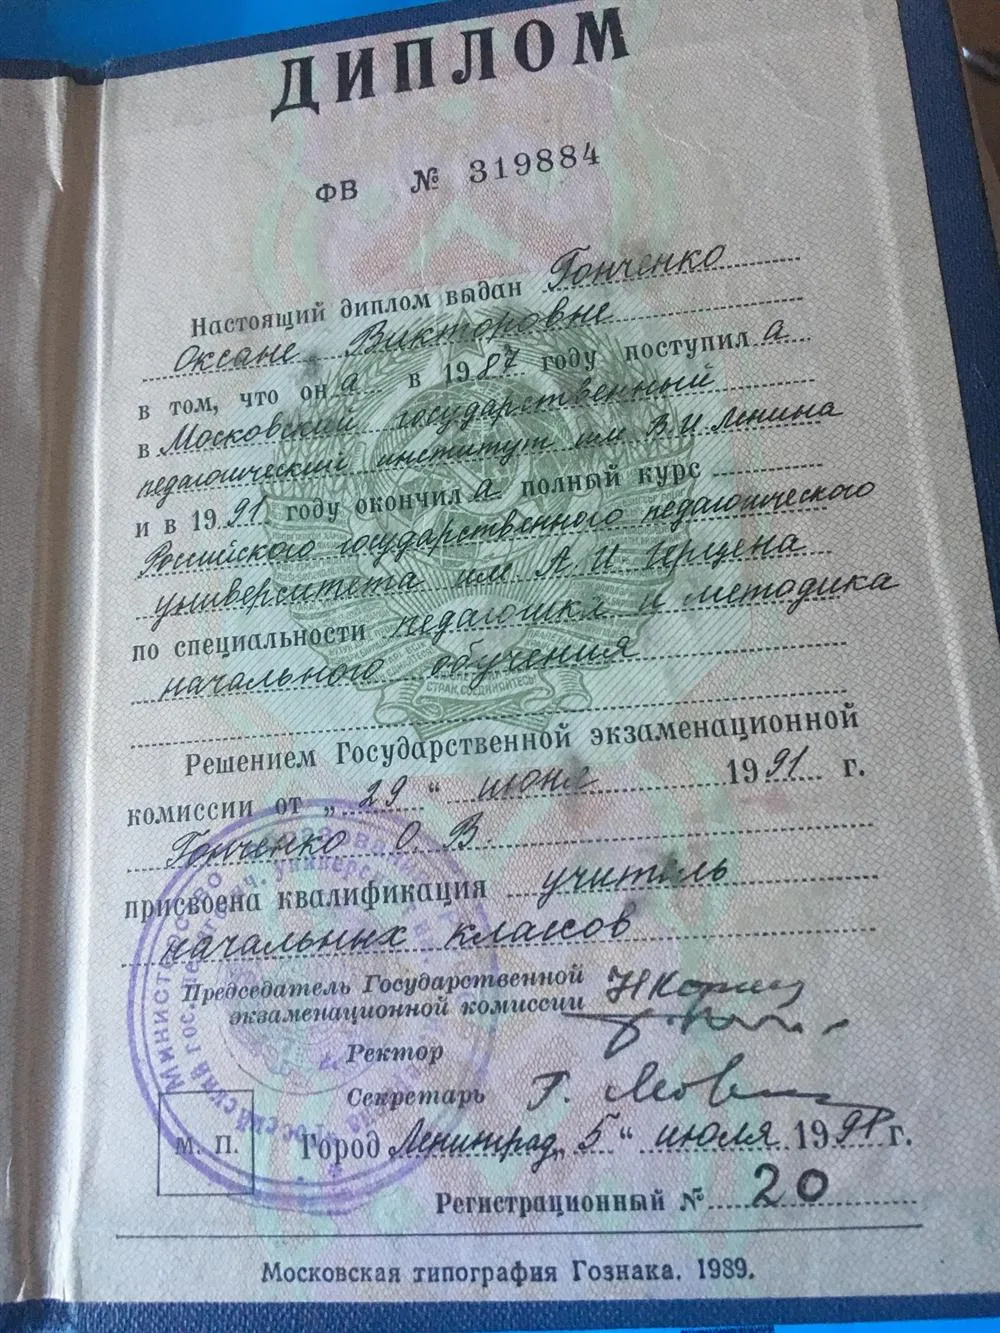 ДИПЛОМ
ФВ № 319884
Настоящий диплом выдан Гонченко
Оксане Викторовне
в том, что она в 1987 году поступила
в Московский государственный
педагогический институт им В.И.Ленина
и в 1991 году окончила полный курс
Российского государственного педагогического
университета им А.И Герцена
по специальности педагогика и методика
начального обучения
Решением Государственной экзаменационной
комиссии от „29“ июня 1991 г.
Гонченко О. В.
присвоена квалификация учитель
начальных классов
Председатель Государственной
экзаменационной комиссии
Ректор
Секретарь
М. П.
Город Ленинград „5“ июля 1991 г.
Регистрационный № 20
Московская типография Гознака. 1989.